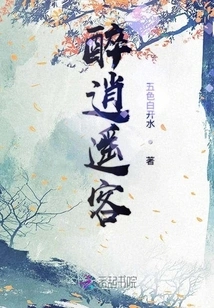 醉逍遥客
五色白开水
著
云起书院